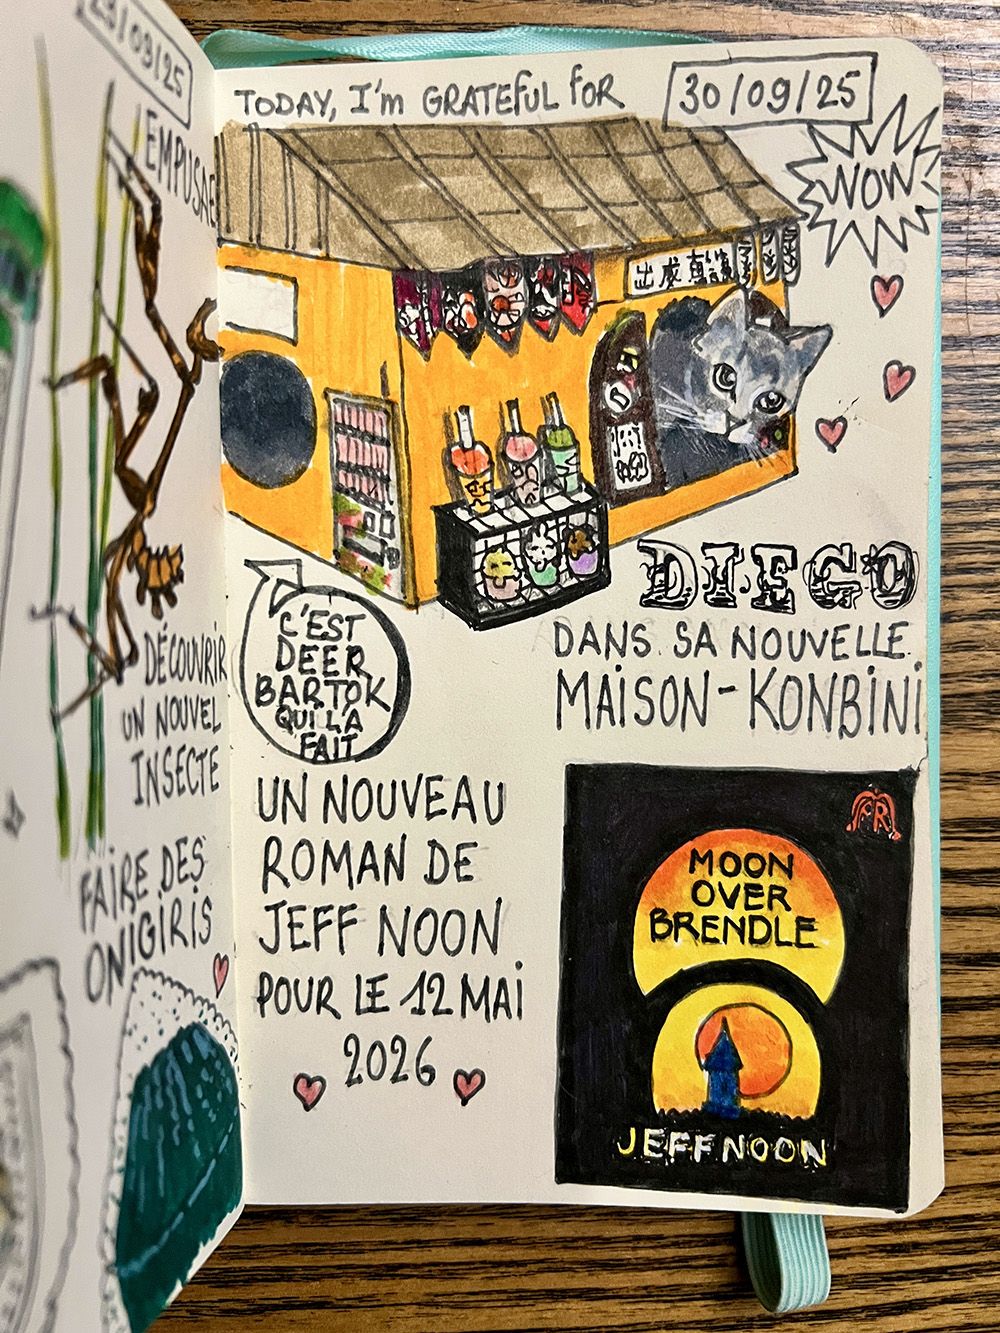 29/09/25
EMPUSAE
DÉCOUVRIR
UN NOUVEL
INSECTE
FAIRE DES
ONIGIRIS
TODAY, I'm GRATEFUL FOR
30/09/25
WOW
DIEGO
DANS SA NOUVELLE
MAISON-KONBINI
C'EST
DEER
BARTOK
QUI L'A
FAIT
UN NOUVEAU
ROMAN DE
JEFF NOON
POUR LE 12 MAI
2026
MOON
OVER
BRENDLE
JEFF NOON